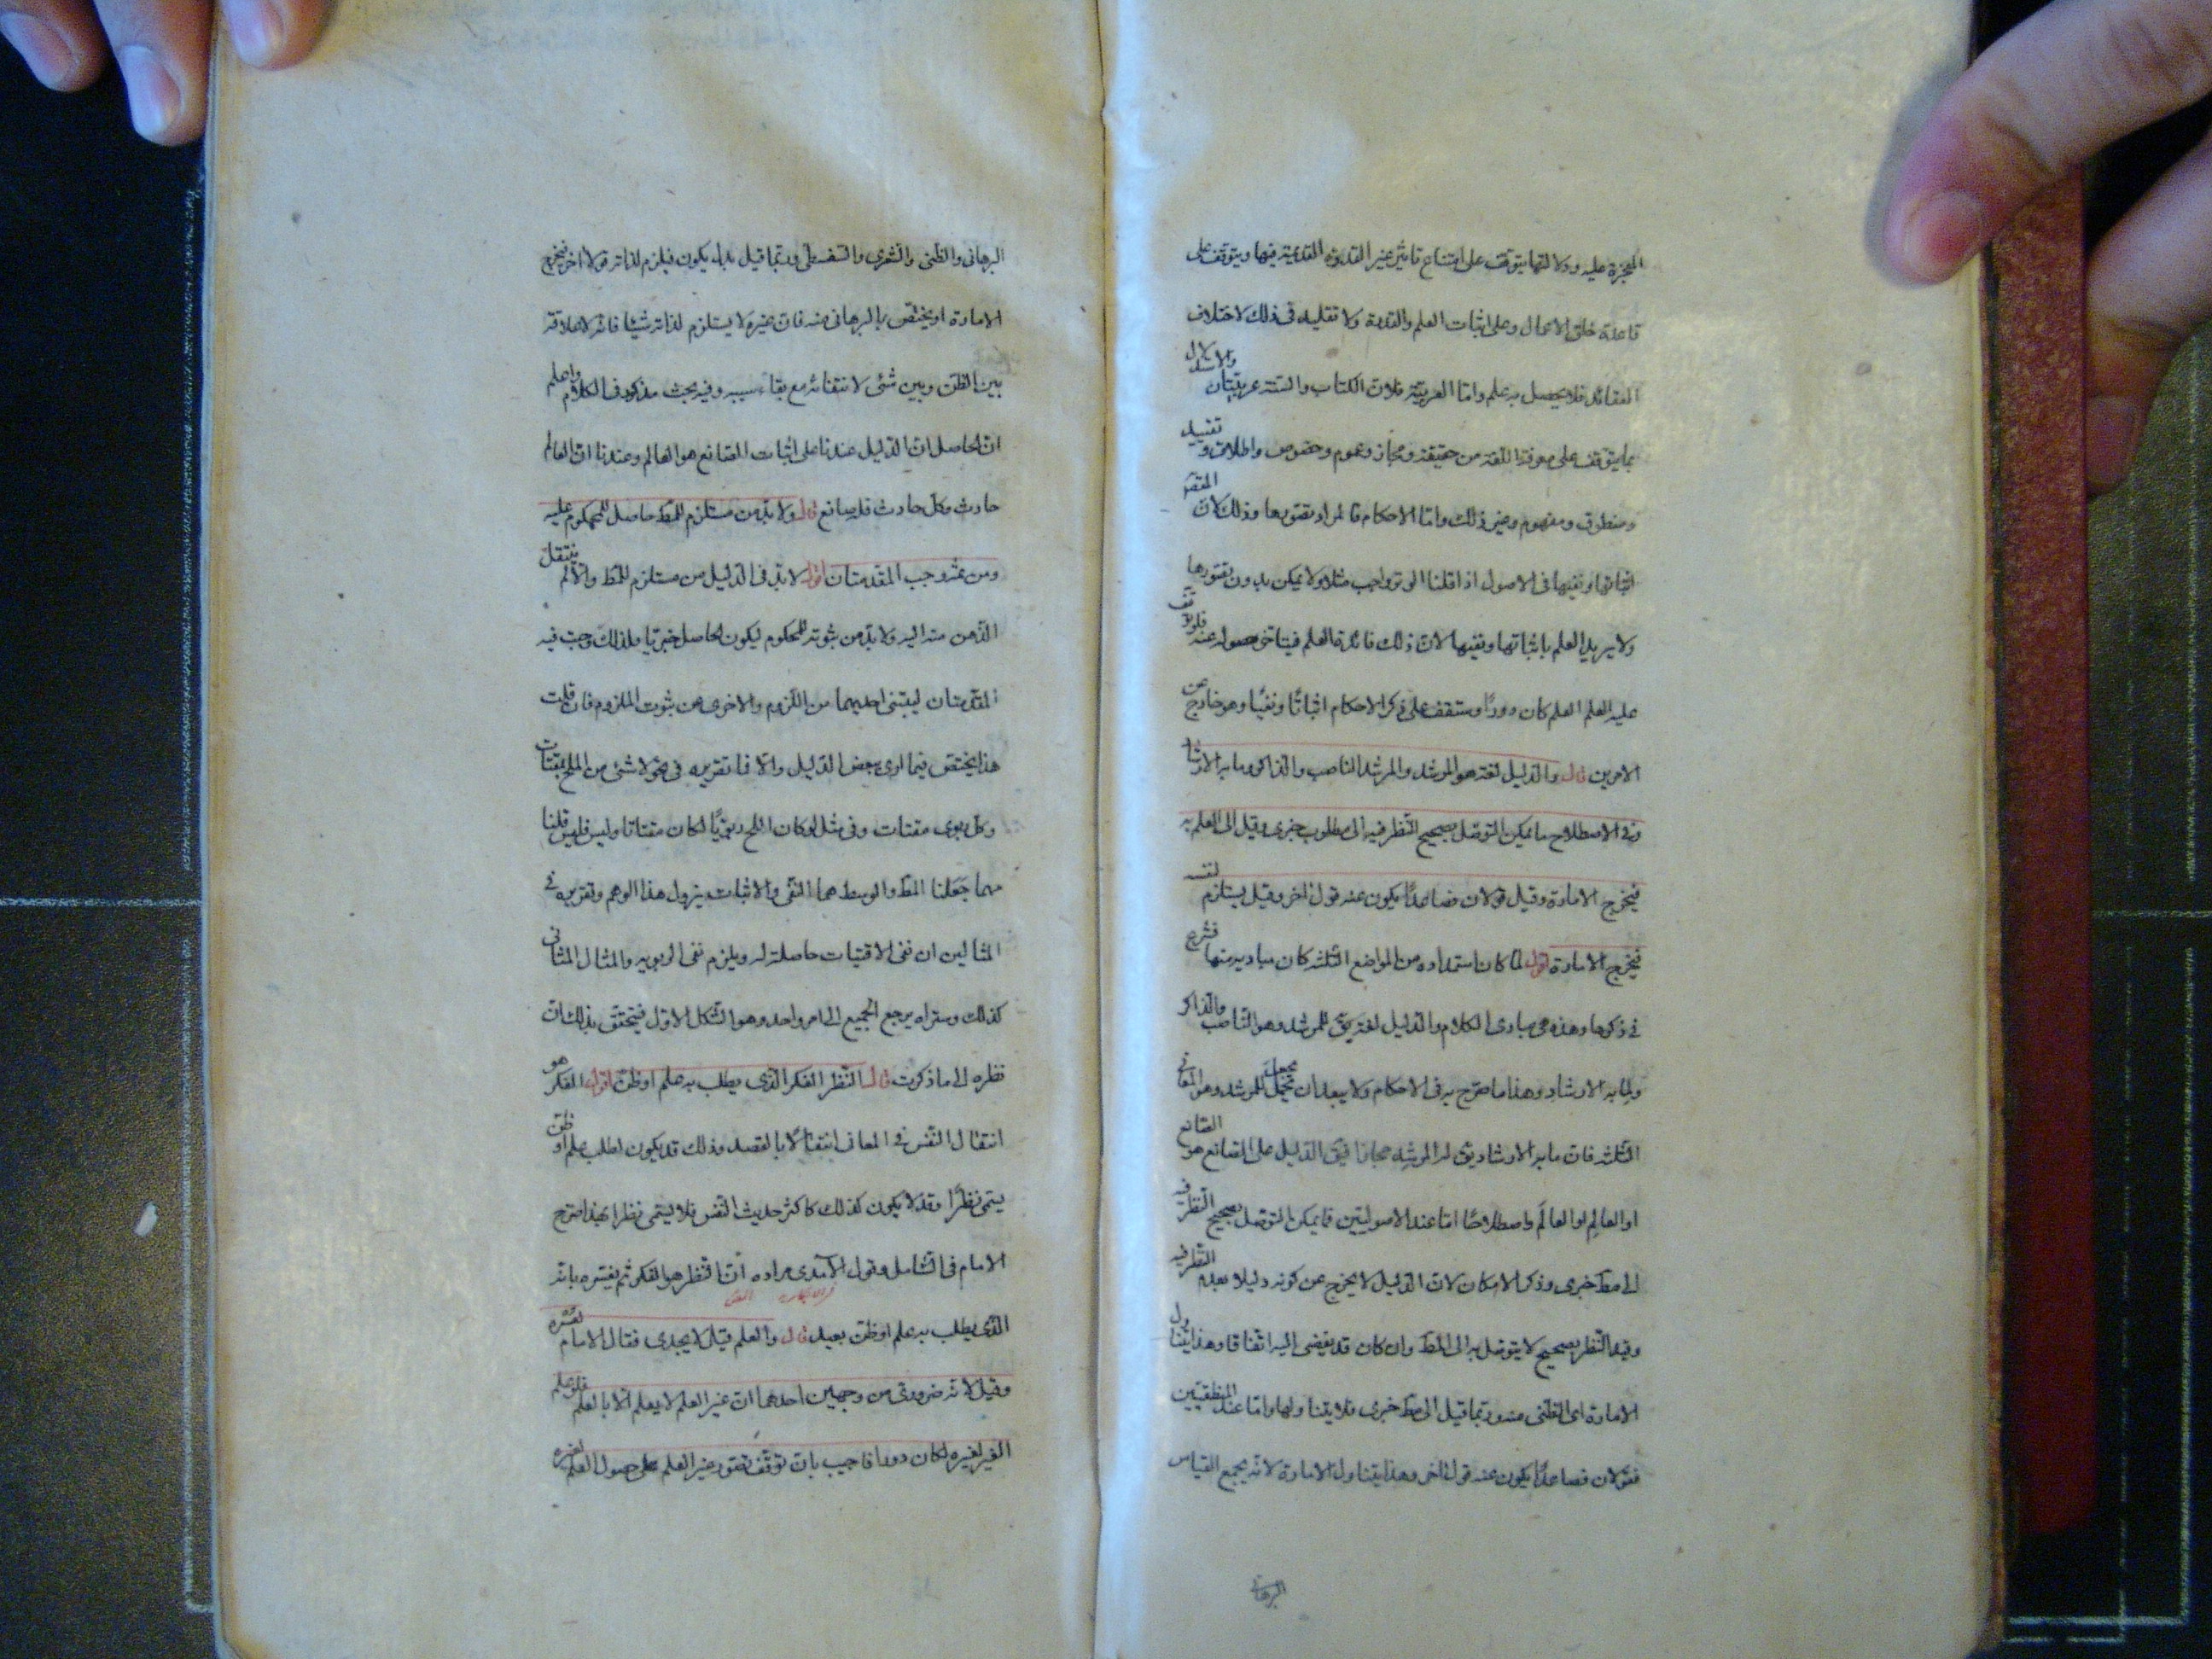 المعجزة عليه ودلالتها يتوقف على امتناع تأثير غير القدرة القديمة فيها ويتوقف على
قاعدة خلق الاعمال وعلى اثبات العلم والقدرة ولا تقليد في ذلك لاختلاف
العقائد فلا يحصل به علم واما العربية فلان الكتاب والسنة عربيتان والاستدلال
بما يتوقف على معرفة اللغة من حقيقة ومجاز وعموم وخصوص واطلاق وتقييد
ومنطوق ومفهوم وغير ذلك واما الاحكام فالمراد تصورها وذلك لان المقصود
اثباتها ونفيها في الاصول اذا قلنا الوتر واجب مثلا ولا يمكن بدون تصورها
ولا يريد العلم باثباتها ونفيها لان ذلك فائدة العلم فيتأخر حصوله عنه فلو توقف
عليه العلم العلم كان دورًا وستقف على ذكر الاحكام اثباتًا ونفيًا وهو خارج عن
الامرين قال والدليل لغة هو المرشد والمرشد الناصب والذاكر وما به الارشاد
وفي الاصطلاح ما يمكن التوصل بصحيح النظر فيه الى مطلوب خبري وقيل الى العلم به
فيخرج الامارة وقيل قولان فصاعدًا يكون عنه قول اخر وقيل يستلزم لنفسه
فيخرج الامارة اقول لما كان استمداده من المواضع الثلثة كان مباديه منها فشرع
في ذكرها وهذه هي مبادى الكلام والدليل لغة يق للمرشد وهو الناصب والذاكر
ولما به الارشاد وهذا ما صرح به في الاحكام ولا يبعد ان يجعل للمرشد وهو المعاني
الثلثة فان ما به الارشاد يق له المرشد مجازا فيق الدليل على الصانع هو الصانع
او العالِم او العالَم واصطلاحًا اما عند الاصوليين فما يمكن التوصل بصحيح النظر فيه
الى مط خبرى وذكر الامكان لان الدليل لا يخرج عن كونه دليلا بعدم النظر فيه
وقيد النظر بصحيح لا يتوصل به الى المط وان كان قد يفضى اليه اتفاقا وهذا يتناول
الامارة اى الظنى منه وربما قيل الى مط خبرى فلا يتناولها واما عند المنطقيين
فقولان فصاعدًا يكون عنه قول اخر وهذا يتناول الامارة لانه يجمع القياس
البرهانى
البرهانى والظنى والشعرى والسفسطى وربما قيل بدل يكون فيلزم لذاته قولا اخر فيخرج
الامارة او يختص بالبرهانى منه فان غيره لا يستلزم لذاته شيئا فانه لا علاقة
بين الظن وبين شئ لانتفائه مع بقاء سببه وفيه بحث مذكور في الكلام واعلم
ان الحاصل ان الدليل عندنا على اثبات الصانع هو العالم وعندنا ان العالم
حادث وكل حادث فله صانع قال ولا بد من مستلزم للمط حاصل للمحكوم عليه
ومن ثمه وجب المقدمتان اقول لا بد في الدليل من مستلزم للمط والا لم ينتقل
الذهن منه اليه ولا بد من ثبوته للمحكوم ليكون الحاصل خبريا فلذلك وجب فيه
المقدمتان ليبتنى احديهما من اللزوم والاخرى عن ثبوت الملزوم فان قلت
هذا يختص فيما ارى ببعض الدليل والا فما تقريره في نحو لا شئ من الملح بمقتات
وكل ربوى مقتات وفي مثل لو كان الملح ربويًا لكان مقتاتا وليس فليس قلنا
مهما جعلنا المط والوسط هما النفى والاثبات يزول هذا الوهم وتقريره في
المثالين ان نفى الاقتيات حاصلة له ويلزم نفى الربوية والمثال الثانى
كذلك وستراه يرجع الجميع الى امر واحد وهو الشكل الاول فيتحقق بذلك ان
نظره الى ما ذكرت قال النظر الفكر الذى يطلب به علم او ظن اقول الفكر هو
انتقال النفس في المعانى انتقالًا بالقصد وذلك قد يكون لطلب علم او ظن
يسمى نظرًا وقد لا يكون كذلك كاكثر حديث النفس فلا يسمى نظرا بهذا صرح
الامام في الشامل وقول الآمدى مراده ان النظر هو الفكر ثم يفسره بانه
الذى يطلب به علم او ظن بعيد قال والعلم قيل لا يجدى فقال الامام لعسره
وقيل لانه ضرورى من وجهين احدهما ان غير العلم لا يعلم الا بالعلم فلو علم
الغير لغيره لكان دورا فاجيب بان توقف تصور غير العلم على حصول العلم لغيره